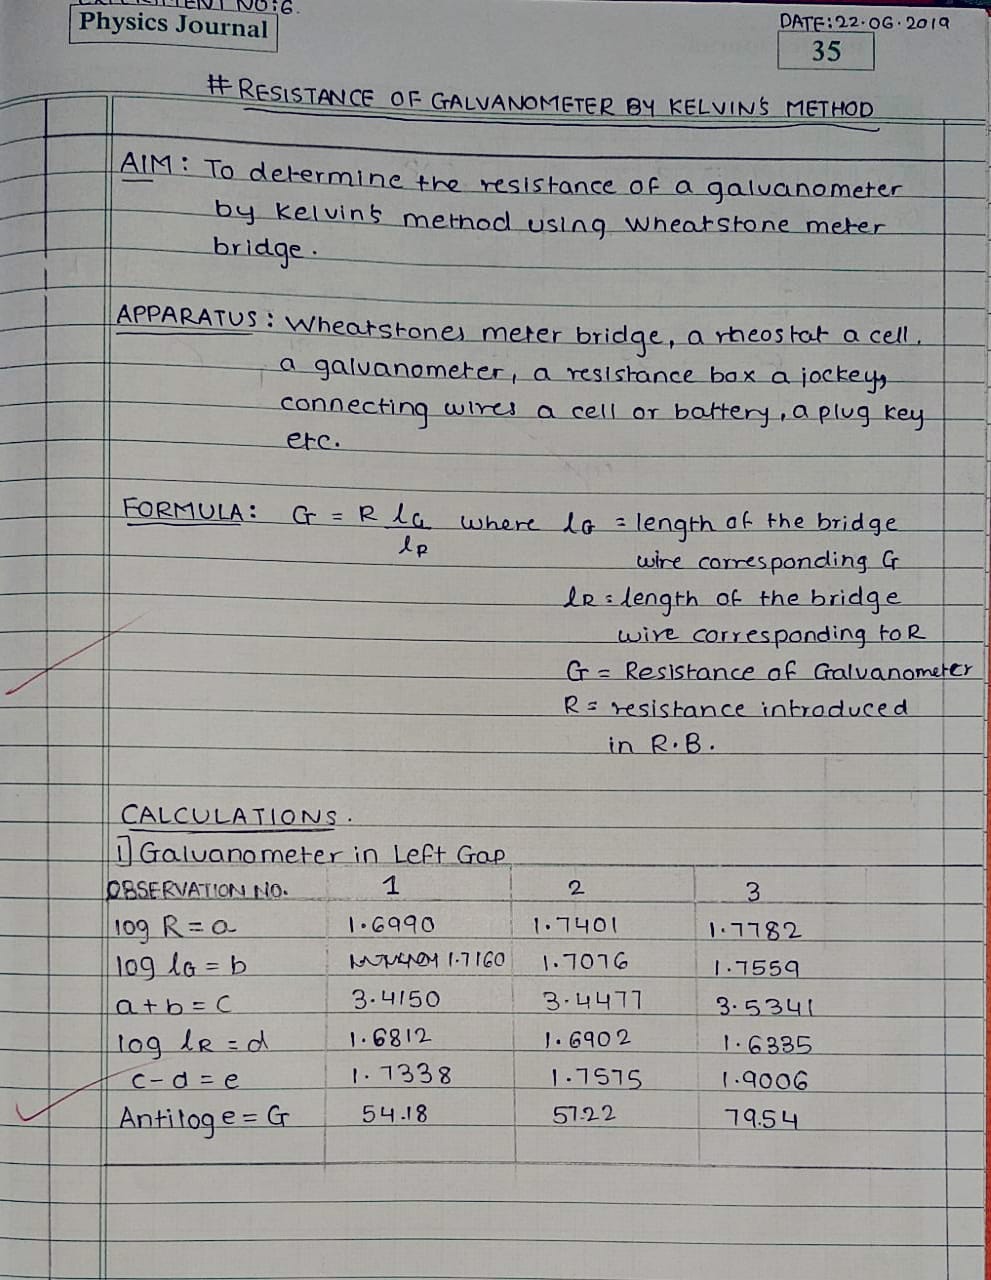 EXPERIMENT NO:6.
Physics Journal
DATE:22.06.2019
35
# RESISTANCE OF GALVANOMETER BY KELVIN'S METHOD
AIM: To determine the resistance of a galvanometer
by Kelvin's method using Wheatstone meter
bridge.
APPARATUS: Wheatstones meter bridge, a rheostat a cell,
a galvanometer, a resistance box a jockey,
connecting wires a cell or battery, a plug key
etc.
FORMULA: G = R lG/lR where lG = length of the bridge
wire corresponding G
lR = length of the bridge
wire corresponding to R
G = Resistance of Galvanometer
R = resistance introduced
in R.B.
CALCULATIONS.
1] Galvanometer in Left Gap
OBSERVATION NO. 1 2 3
log R = a 1.6990 1.7401 1.7782
log lG = b 1.7160 1.7076 1.7559
a+b = c 3.4150 3.4477 3.5341
log lR = d 1.6812 1.6902 1.6335
c-d = e 1.7338 1.7575 1.9006
Antilog e = G 54.18 57.22 79.54